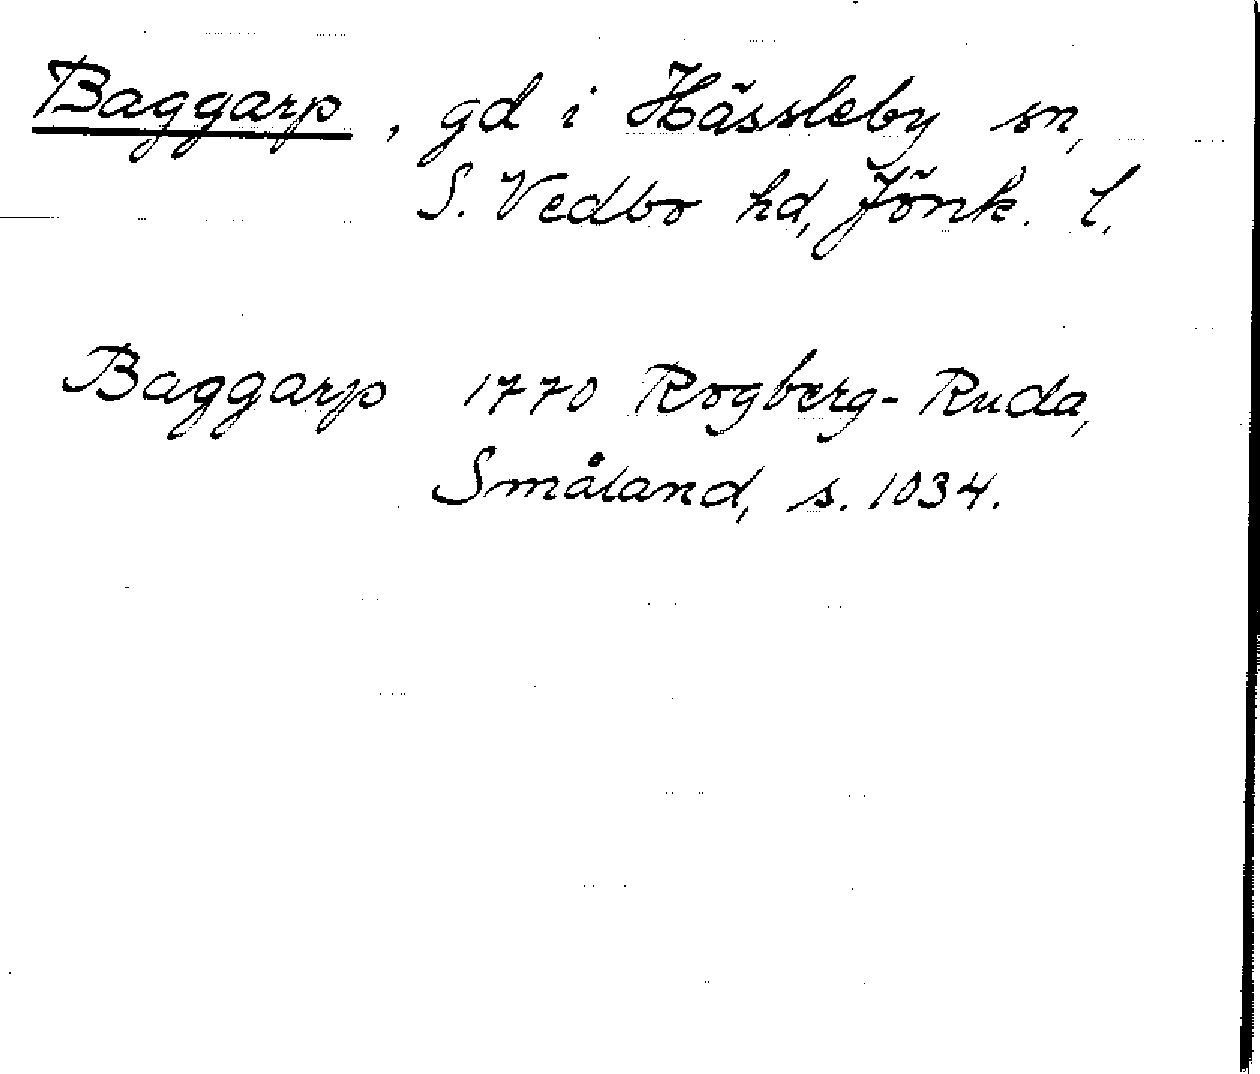 Baggarp, gd i Hässleby sn,
S. Vedbo hd, Jönk. l.
Baggarp 1770 Rogberg-Ruda,
Småland, s. 1034.